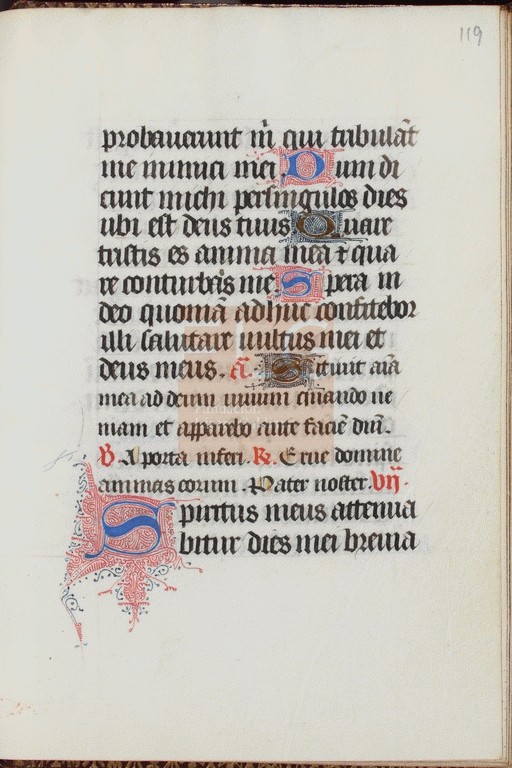 119
probauerunt m̃ qui tribulãt
me inimici mei Dum di
cunt michi persingulos dies
ubi est deus tuus Quare
tristis es anima mea ⁊ qua
re conturbas me Spera in
deo quoniã adhuc confitebor
illi salutare uultus mei et
deus meus. Añ. Sitiuit aĩa
mea ad deum uiuum quando ue
niam et apparebo ante faciẽ dñi.
V. A porta inferi. R. Erue domine
animas eorum. Pater noster. vij.
Spiritus meus attenua
bitur dies mei breuia